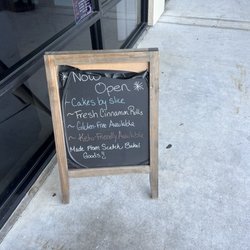 Now
Open
~Cakes by slice
~Fresh Cinnamon Rolls
~Gluten-Free Available
~Keto-Friendly Available
Made From Scratch Baked
Goods!!